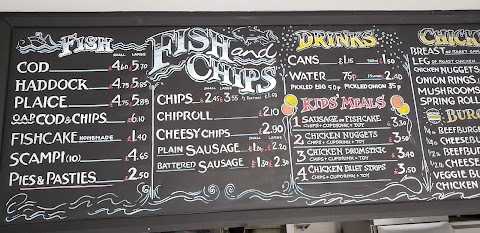 FISH
SMALL LARGE
COD £4.60 5.70
HADDOCK £4.75 5.85
PLAICE £4.75 5.85
O.A.P COD & CHIPS £6.10
FISHCAKE HOMEMADE £1.40
SCAMPI (10) £4.65
PIES & PASTIES £2.50
FISH and CHIPS
SMALL LARGE
CHIPS £2.45 3.55
CHIPROLL £2.10
CHEESY CHIPS £2.90
PLAIN SAUSAGE £1.20
BATTERED SAUSAGE £1.30 2.30
DRINKS
CANS £1.15
WATER 75p
PICKLED EGG 50p PICKLED ONION 35p
KIDS MEALS
1 SAUSAGE OR FISHCAKE £3.40
CHIPS + CUPDRINK + TOY
2 CHICKEN NUGGETS £3.40
CHIPS + CUPDRINK + TOY
3 CHICKEN DRUMSTICK £3.40
CHIPS + CUPDRINK + TOY
4 CHICKEN FILLET STRIPS £3.50
CHIPS + CUPDRINK + TOY
CHICK
BREAST
LEG OF ROAST CHICKEN
CHICKEN NUGGETS
ONION RINGS
MUSHROOMS
SPRING ROLL
BURG
BEEFBURG
CHEESE
BEEFBU
CHEESE
VEGGIE BU
CHICKEN